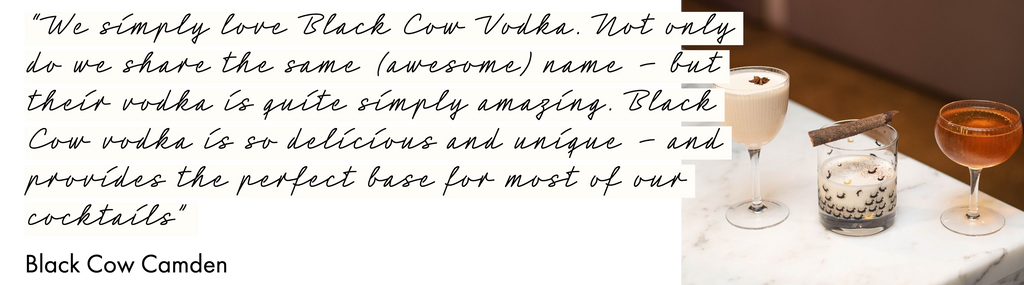 “We simply love Black Cow Vodka. Not only
do we share the same (awesome) name – but
their vodka is quite simply amazing. Black
Cow vodka is so delicious and unique – and
provides the perfect base for most of our
cocktails”
Black Cow Camden